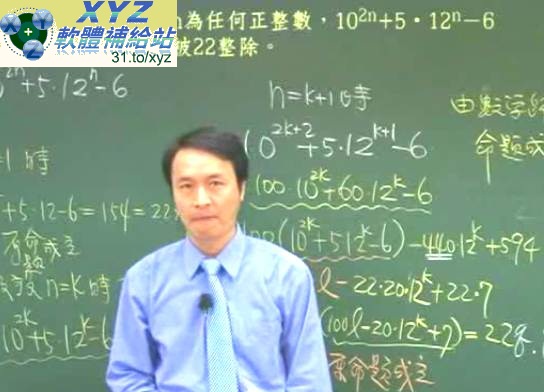 XYZ
軟體補給站
31.to/xyz
為任何正整數，10²ⁿ+5·12ⁿ-6
被22整除。
²ⁿ+5·12ⁿ-6
=1 時
+5·12-6=154=22
原命題成立
設 n=k 時
10²ᵏ+5·12ᵏ-6
n=k+1時
10²ᵏ⁺²+5·12ᵏ⁺¹-6
100·10²ᵏ+60·12ᵏ-6
(10²ᵏ+5·12ᵏ-6)-440·12ᵏ+594
l-22·20·12ᵏ+22·7
(100l-20·12ᵏ+7)=22
原命題成立
由數學
命題成